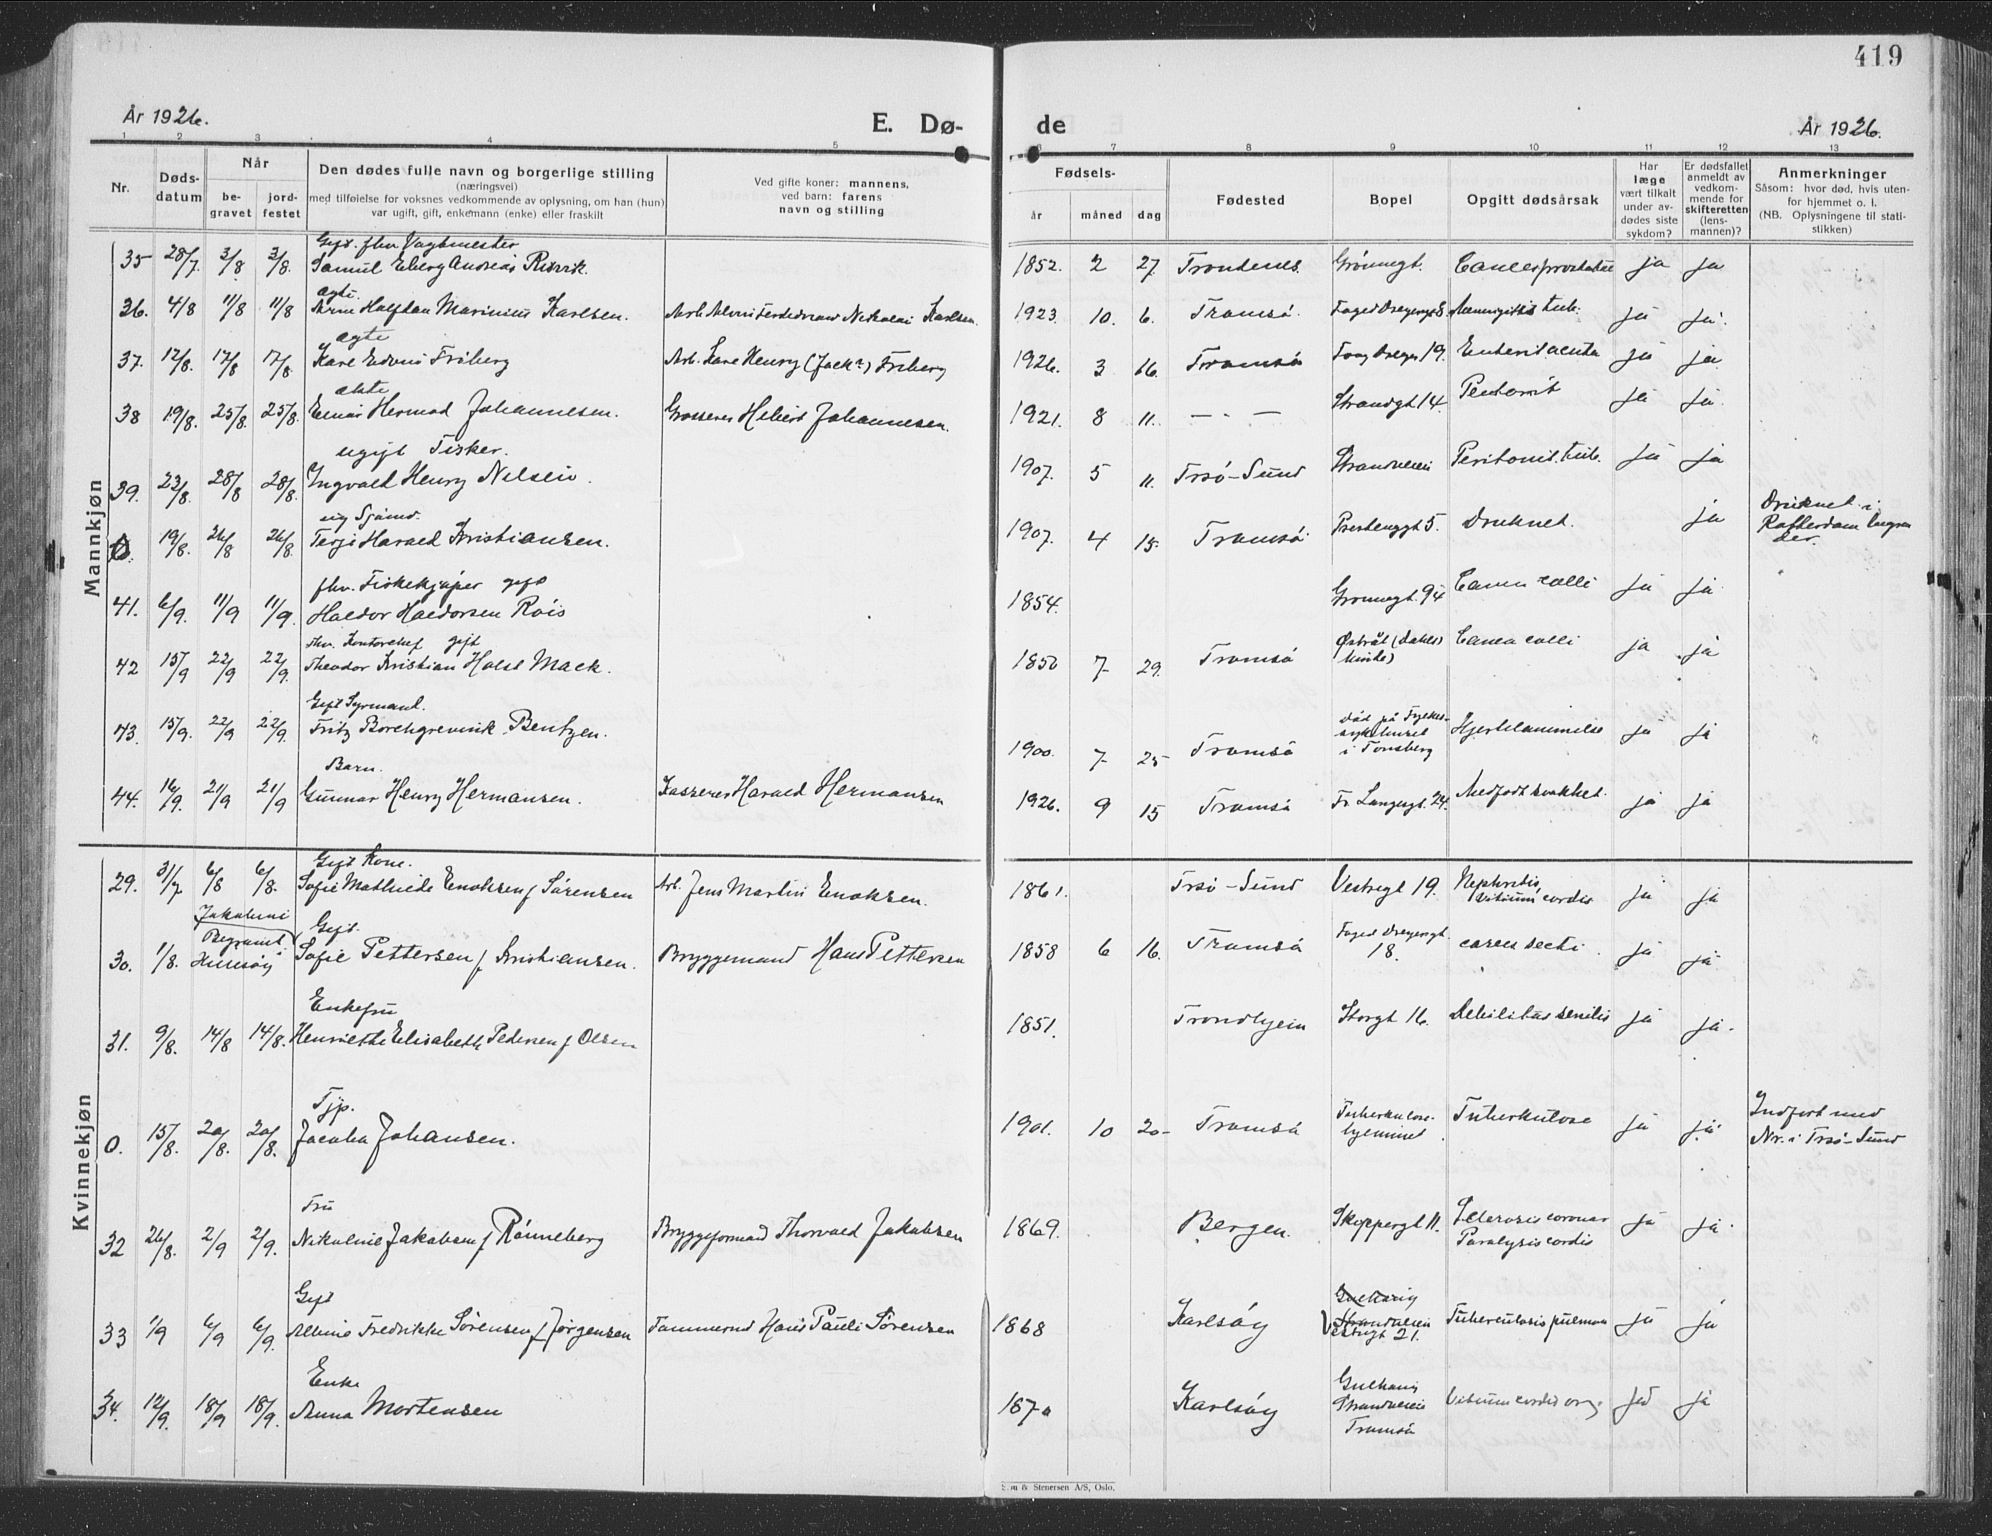 419
År 1926.
E. Dø-
de
År 1926.
1 2 3 4 5 6 7 8 9 10 11 12 13
Nr.
Dødsdatum
Når
begravet
jordfestet
Den dødes fulle navn og borgerlige stilling
(næringsvei)
med tilføielse for voksnes vedkommende av oplysning, om han (hun)
var ugift, gift, enkemann (enke) eller fraskilt
Ved gifte koner: mannens,
ved barn: farens
navn og stilling
Fødsels-
år måned dag
Fødested
Bopel
Opgitt dødsårsak
Har
læge
vært tilkalt
under av-
dødes siste
sykdom?
Er dødsfallet
anmeldt av
vedkom-
mende for
skifteretten
(lens-
mannen)?
Anmerkninger
Såsom: hvor død, hvis uten-
for hjemmet o. l.
(NB. Oplysningene til stati-
stikken)
Mannkjøn
Gift. fhv. Vagtmester
35 28/7. 3/8 3/8. Samuel Eberg Andreas Risvik. 1852. 2 27 Trondenes. Grønnegt. Cancer prostatae ja ja
ægte.
36. 4/8 11/8 11/8 Arne Halfdan Marinius Karlsen. Arb. Alvin Ferdedinand Nikolai Karlsen. 1923. 10. 6. Tromsø. Foged Dreyersgt 8. Meningitis tub. ja ja.
ægte
37. 12/8. 17/8 17/8 Kåre Edvin Friberg Arb. Kåre Henry (Jack?) Friberg 1926. 3 16. Tromsø Fog Dreyer 19. Enterit acuta ja ja
ekte
38 19/8. 25/8. 25/8. Einar Hermod Johannesen. Grosserer Hilbert Johannesen. 1921. 8 11. — . — Strandgt 14. Peritonit ja ja.
ugift Fisker.
39. 23/8. 28/8 28/8. Ingvald Henry Nilsen. 1907. 5 11. Trsø-Sund Strandveien Peritonit. tub. ja ja
ug Sjømd.
0. 19/8. 26/8 26/8 Terje Harald Kristiansen. 1907. 4 15. Tromsø. Prestenggt 5. Druknet. ja Druknet i
Rotterdam
fhv. Fiskekjøper gift
41. 6/9. 11/9 11/9. Haldor Haldorsen Røis 1854. Grønnegt. 94 Cancer colli ja ja
fhv. Kontorchef gift
42 15/9 22/9 22/9. Theodor Kristian Holst Mack. 1850 7 29. Tromsø Østråt (Dahls) Cancer colli ja ja
Gift Styrmand.
43. 15/9. 22/9 22/9. Fritz Borchgrevink Bentzen. 1900. 7 25 Tromsø Død på Fylkes-
sykehuset
i Tønsberg Hjertelammelse ja ja
Barn.
44. 16/9. 21/9 21/9 Gunnar Henry Hermansen. Kasserer Harald Hermansen 1926. 9 15 Tromsø Fr Langesgt. 24. Medfødt svakhet. ja ja
Kvinnekjøn
Gift Kone.
29. 31/7 6/8 6/8. Sofie Mathilde Enoksen f Sørensen Arb. Jens Martin Enoksen. 1861. Trsø-Sund Vestregt 19. Nephritis,
Vitium cordis ja ja
Gift.
30. 1/8. Begravet Hillesøy Sofie Pettersen f Kristiansen. Bryggemand Hans Pettersen 1858 6 16. Tromsø Foged Dreyersgt.
18. cancer recti ja ja
Enkefru
31. 9/8. 14/8 14/8. Henriette Elisabeth Pedersen f Olsen 1851. Trondhjem Storgt 16. Debilitas senilis ja ja.
Tjp.
0. 15/8. 20/8. 20/8. Jacoba Johansen. 1901. 10 20 Tromsø Tuberkulose-
hjemmet Tuberkulose ja ja. Indført med
Nr. i Trsø-Sund
Fru
32 26/8. 2/9 2/9. Nikoline Jakobsen f Rønneberg Bryggeformand Thorvald Jakobsen 1869. Bergen. Skippergt 11. Sclerosis coronar
Paralysis cordis ja ja.
Gift
33 1/9 6/9 6/9. Albine Fredrikke Sørensen f Jørgensen Tømmermd Hans Pauli Sørensen 1868 Karlsøy Guleng
Strandveien
Vestregt 21. Tuberculosis pulmon ja ja
Enke
34. 12/9. 18/9 18/9. Anna Mortensen 1870 Karlsøy Guleng
Strandveien
Tromsø Vitium cordis org. ja ja
& Stenersen A/S, Oslo.